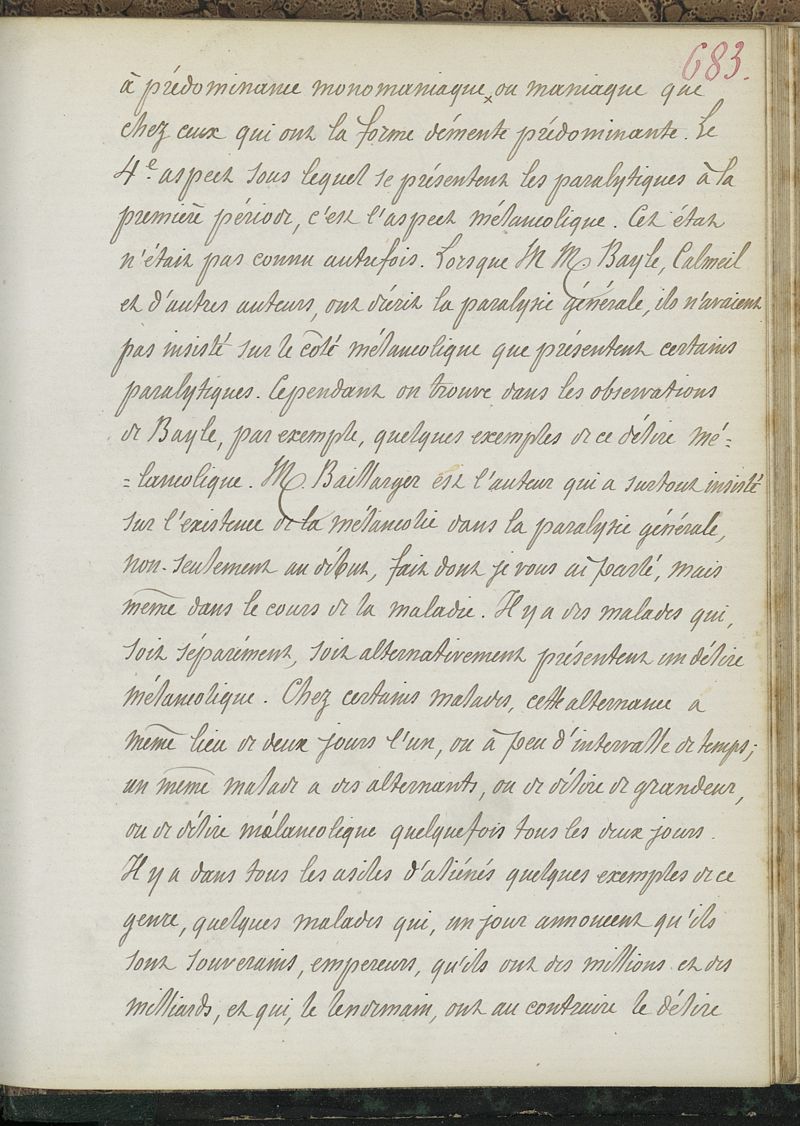 683.
à prédominance monomaniaque, ou maniaque que
chez ceux qui ont la forme démente prédominante. Le
4e. aspect sous lequel se présentent les paralytiques à la
première période, c'est l'aspect mélancolique. Cet état
n'était pas connu autrefois. Lorsque M M. Bayle, Calmeil
et d'autres auteurs, ont décrit la paralysie générale, ils n'avaient
pas insisté sur le côté mélancolique que présentent certains
paralytiques. Cependant on trouve dans les observations
de Bayle, par exemple, quelques exemples de ce délire mé-
=lancolique. M. Baillarger est l'auteur qui a surtout insisté
sur l'existence de la mélancolie dans la paralysie générale,
non-seulement au début, fait dont je vous ai parlé, mais
même dans le cours de la maladie. Il y a des malades qui,
soit séparément, soit alternativement présentent un délire
mélancolique. Chez certains malades, cette alternance a
même lieu de deux jours l'un, ou à peu d'intervalle de temps;
un même malade a des alternants, ou de délire de grandeur,
ou de délire mélancolique quelquefois tous les deux jours.
Il y a dans tous les asiles d'aliénés quelques exemples de ce
genre, quelques malades qui, un jour annoncent qu'ils
sont souverains, empereurs, qu'ils ont des millions et des
milliards, et qui, le lendemain, ont au contraire le délire